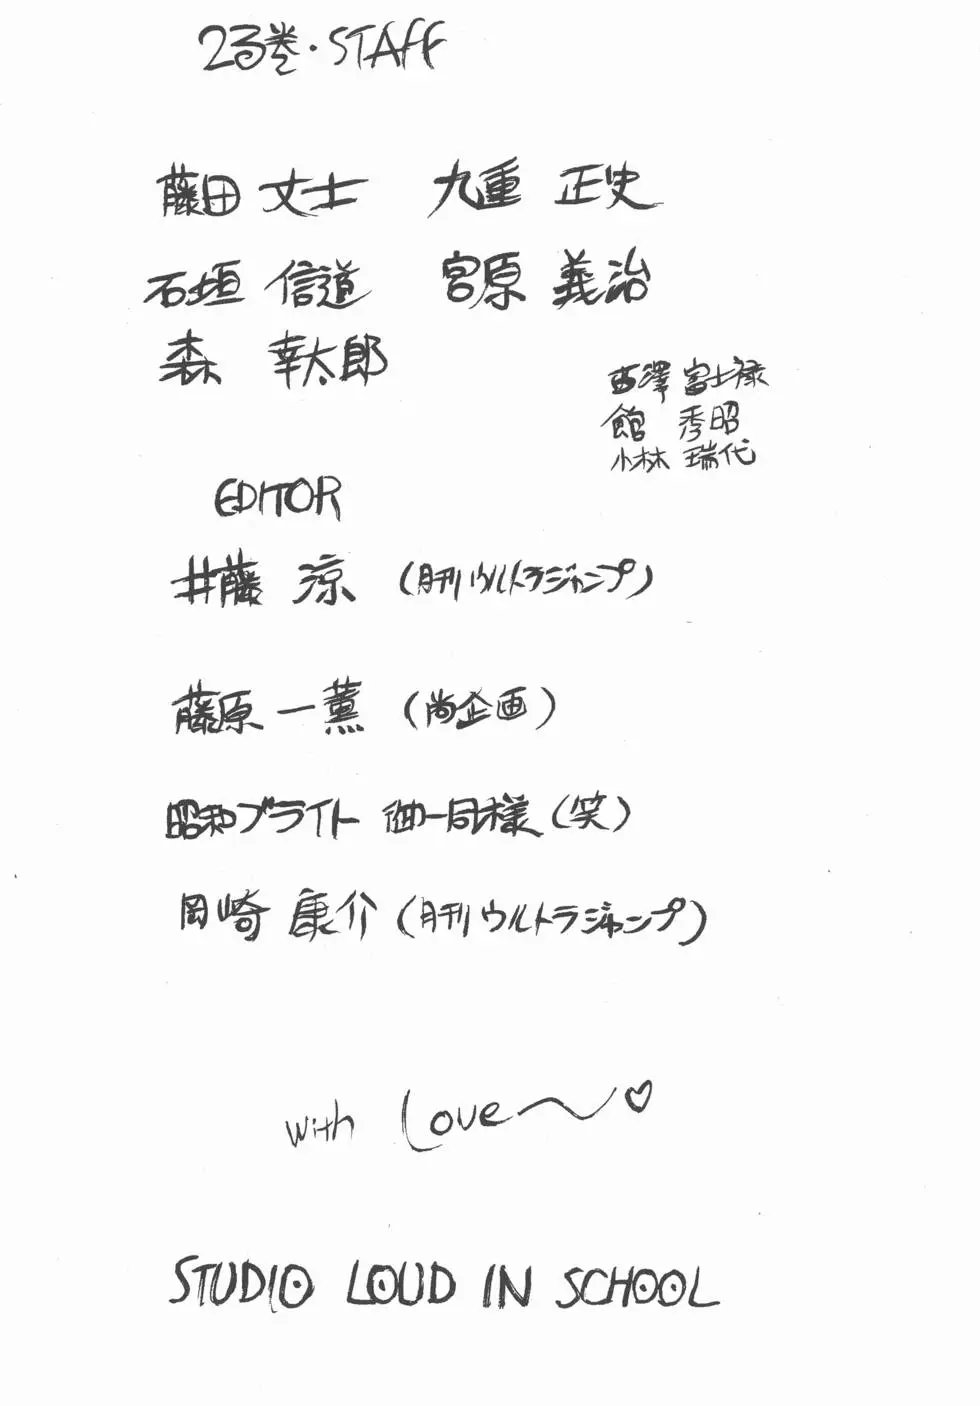 23巻・STAFF
藤田 丈士 九重 正史
石垣 信道 宮原 義治
森 幸太郎
西澤 富士禄
館 秀昭
小林 瑞代
EDITOR
井藤 涼 (月刊ウルトラジャンプ)
藤原 一薫 (尚企画)
昭和ブライト 御一同様 (笑)
岡崎 康介 (月刊ウルトラジャンプ)
with Love〜♡
STUDIO LOUD IN SCHOOL